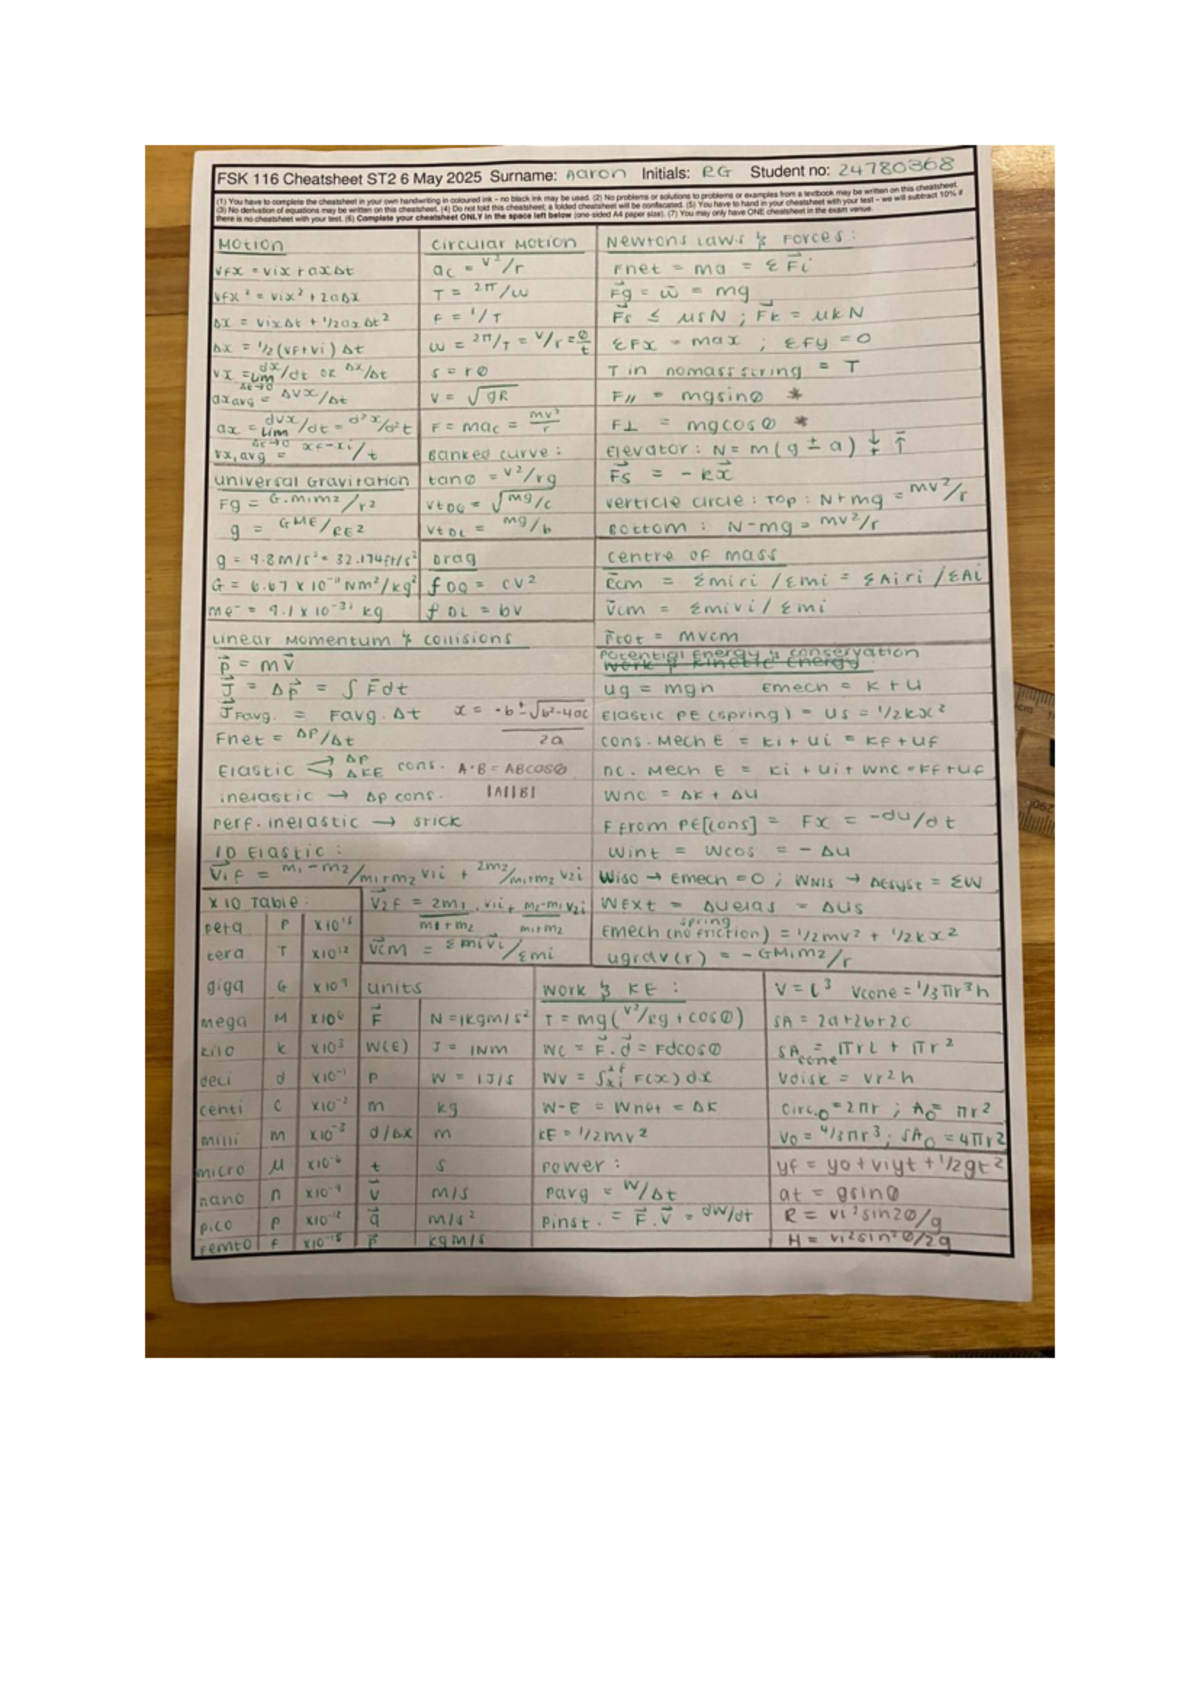 FSK 116 Cheatsheet ST2 6 May 2025 Surname: Aaron Initials: RG Student no: 24780368
(1) You have to complete the cheatsheet in your own handwriting in coloured ink - no black ink may be used. (2) No problems or solutions to problems or examples from a textbook may be written on this cheatsheet.
(3) No derivation of equations may be written on this cheatsheet. (4) Do not fold this cheatsheet; a folded cheatsheet will be confiscated. (5) You have to hand in your cheatsheet with your test - we will subtract 10% if
there is no cheatsheet with your test. (6) Complete your cheatsheet ONLY in the space left below (one-sided A4 paper size). (7) You may only have ONE cheatsheet in the exam venue.
Motion
vfx = vix + axΔt
vfx² = vix² + 2aΔx
Δx = vixΔt + 1/2axΔt²
Δx = 1/2(vf+vi)Δt
vx = lim Δt→0 dx/dt or Δx/Δt
ax avg = Δvx/Δt
ax = lim Δt→0 dvx/dt = d²x/d²t
vx,avg = xf-xi/t
Universal Gravitation
Fg = G.m1m2/r²
g = GME/RE²
g = 9.8m/s² = 32.174ft/s²
G = 6.67 x 10⁻¹¹ Nm²/kg²
me⁻ = 9.1 x 10⁻³¹ kg
Circular Motion
ac = v²/r
T = 2π/ω
F = 1/T
ω = 2π/T = v/r = θ/t
s = rθ
v = √gR
F = mac = mv²/r
Banked curve:
tanθ = v²/rg
vtDQ = √mg/c
vtDL = mg/b
Drag
fDQ = cv²
fDL = bv
Newtons Laws & Forces:
Fnet = ma = ΣFi
Fg = w = mg
Fs ≤ μsN ; Fk = μkN
ΣFx = max ; ΣFy = 0
T in nomass string = T
F// = mgsinθ *
F⊥ = mgcosθ *
Elevator: N = m(g ± a) ↓ ↑
Fs = -kx
Verticle circle: Top: N+mg = mv²/r
Bottom: N-mg = mv²/r
Centre of mass
rcm = Σmiri/Σmi = ΣAiri/ΣAi
vcm = Σmivi/Σmi
Ptot = mvcm
Linear Momentum & Collisions
p = mv
J = Δp = ∫Fdt
JFavg. = Favg.Δt
x = -b±√b²-4ac / 2a
Fnet = ΔP/Δt
Elastic → ΔP ΔKE cons.
A·B = ABcosθ
|A||B|
inelastic → Δp cons.
perf. inelastic → stick
1D Elastic:
V1f = m1-m2/m1+m2 v1i + 2m2/m1+m2 v2i
V2f = 2m1/m1+m2 .v1i + m2-m1/m1+m2 v2i
Vcm = Σmivi/Σmi
Potential Energy & Conservation
Work & Kinetic Energy
Ug = mgh Emech = K + U
Elastic PE (spring) = Us = 1/2kx²
cons. Mech E = Ki + Ui = Kf + Uf
nc. Mech E = Ki + Ui + Wnc = Kf + Uf
Wnc = ΔK + ΔU
F from PE[cons] = Fx = -du/dt
Wint = Wcos = -ΔU
Wiso → Emech = 0 ; WNIS → ΔEsyst = ΣW
WExt = ΔUelas = ΔUs
spring
Emech (no friction) = 1/2mv² + 1/2kx²
Ugrav(r) = -GM1m2/r
x10 Table:
peta P x10¹⁵
tera T x10¹²
giga G x10⁹
mega M x10⁶
kilo k x10³
deci d x10⁻¹
centi c x10⁻²
milli m x10⁻³
micro μ x10⁻⁶
nano n x10⁻⁹
pico p x10⁻¹²
femto F x10⁻¹⁵
units
F N = 1kgm/s²
W(E) J = 1Nm
P W = 1J/s
m kg
d/Δx m
t s
v m/s
a m/s²
p kgm/s
Work & KE:
T = mg(v²/rg + cosθ)
Wc = F.d = Fdcosθ
Wv = ∫xi xf F(x)dx
W-E = Wnet = ΔK
KE = 1/2mv²
Power:
Pavg = W/Δt
Pinst. = F.V = dW/dt
V = l³ Vcone = 1/3πr³h
SA = 2a+2b+2c
SAcone = πrL + πr²
Vdisk = vr²h
Circ.o = 2πr ; Ao = πr²
Vo = 4/3πr³ ; SAo = 4πr²
yf = yo + viyt + 1/2gt²
at = gsinθ
R = vi²sin2θ/g
H = vi²sin²θ/2g